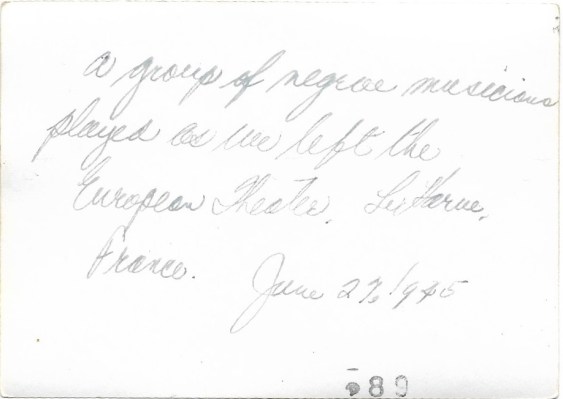 a group of negroe musicians
played as we left the
European Theater, Le Havre,
France.
June 27, 1945
89